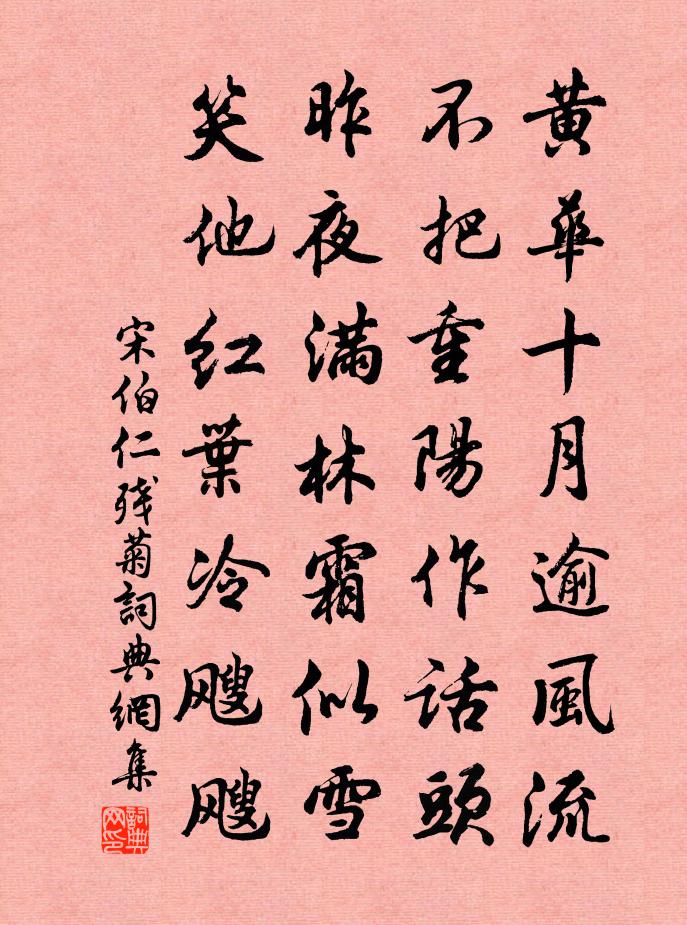 黄華十月逾風流
不把重陽作話頭
昨夜滿林霜似雪
笑他紅葉冷颼颼
宋伯仁殘菊詞典網集
詞典网印